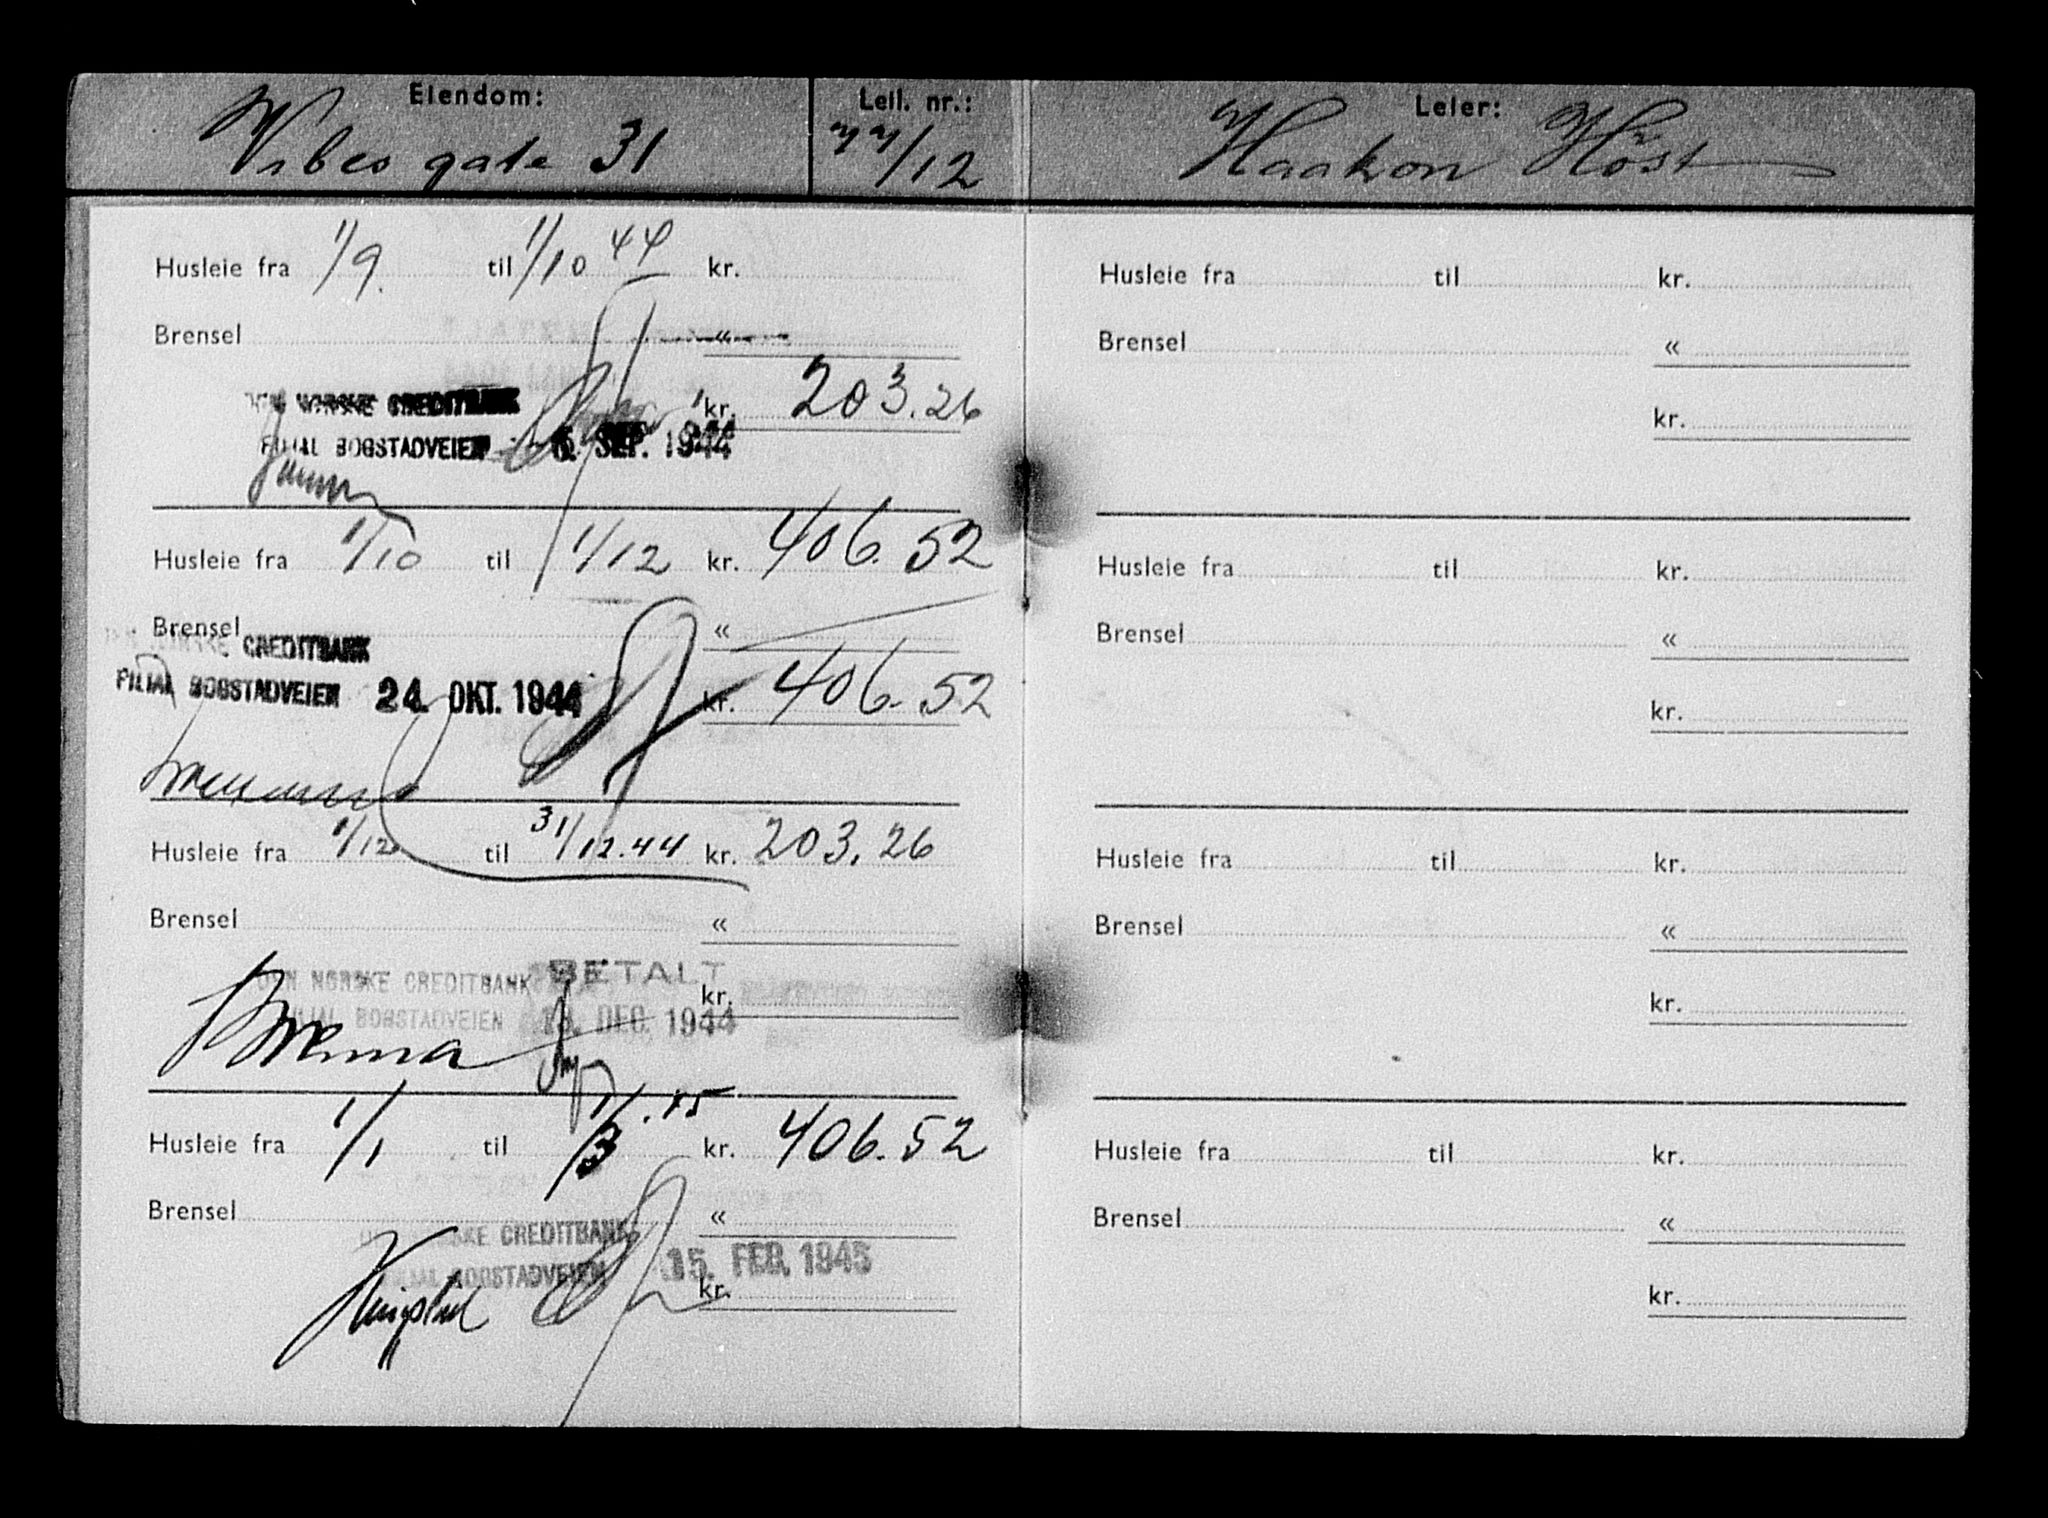 Eiendom: Vibes gate 31
Leil. nr.: /12
Leier: Haakon Höst
Husleie fra 1/9. til 1/10 44 kr.
Brensel «
DEN NORSKE CREDITBANK kr. 203.26
FILIAL BOGSTADVEIEN SEP. 1944
Husleie fra 1/10 til 1/12 kr. 406.52
Brensel «
DEN NORSKE CREDITBANK
FILIAL BOGSTADVEIEN 24. OKT. 1944 kr. 406.52
Husleie fra 1/12 til 31/12.44 kr. 203.26
Brensel «
DEN NORSKE CREDITBANK BETALT kr.
FILIAL BOGSTADVEIEN DEC. 1944
Husleie fra 1/1 til 1/3.45 kr. 406.52
Brensel «
DEN NORSKE CREDITBANK
FILIAL BOGSTADVEIEN 15. FEB. 1945
kr.
Husleie fra til kr.
Brensel «
kr.
Husleie fra til kr.
Brensel «
kr.
Husleie fra til kr.
Brensel «
kr.
Husleie fra til kr.
Brensel «
kr.